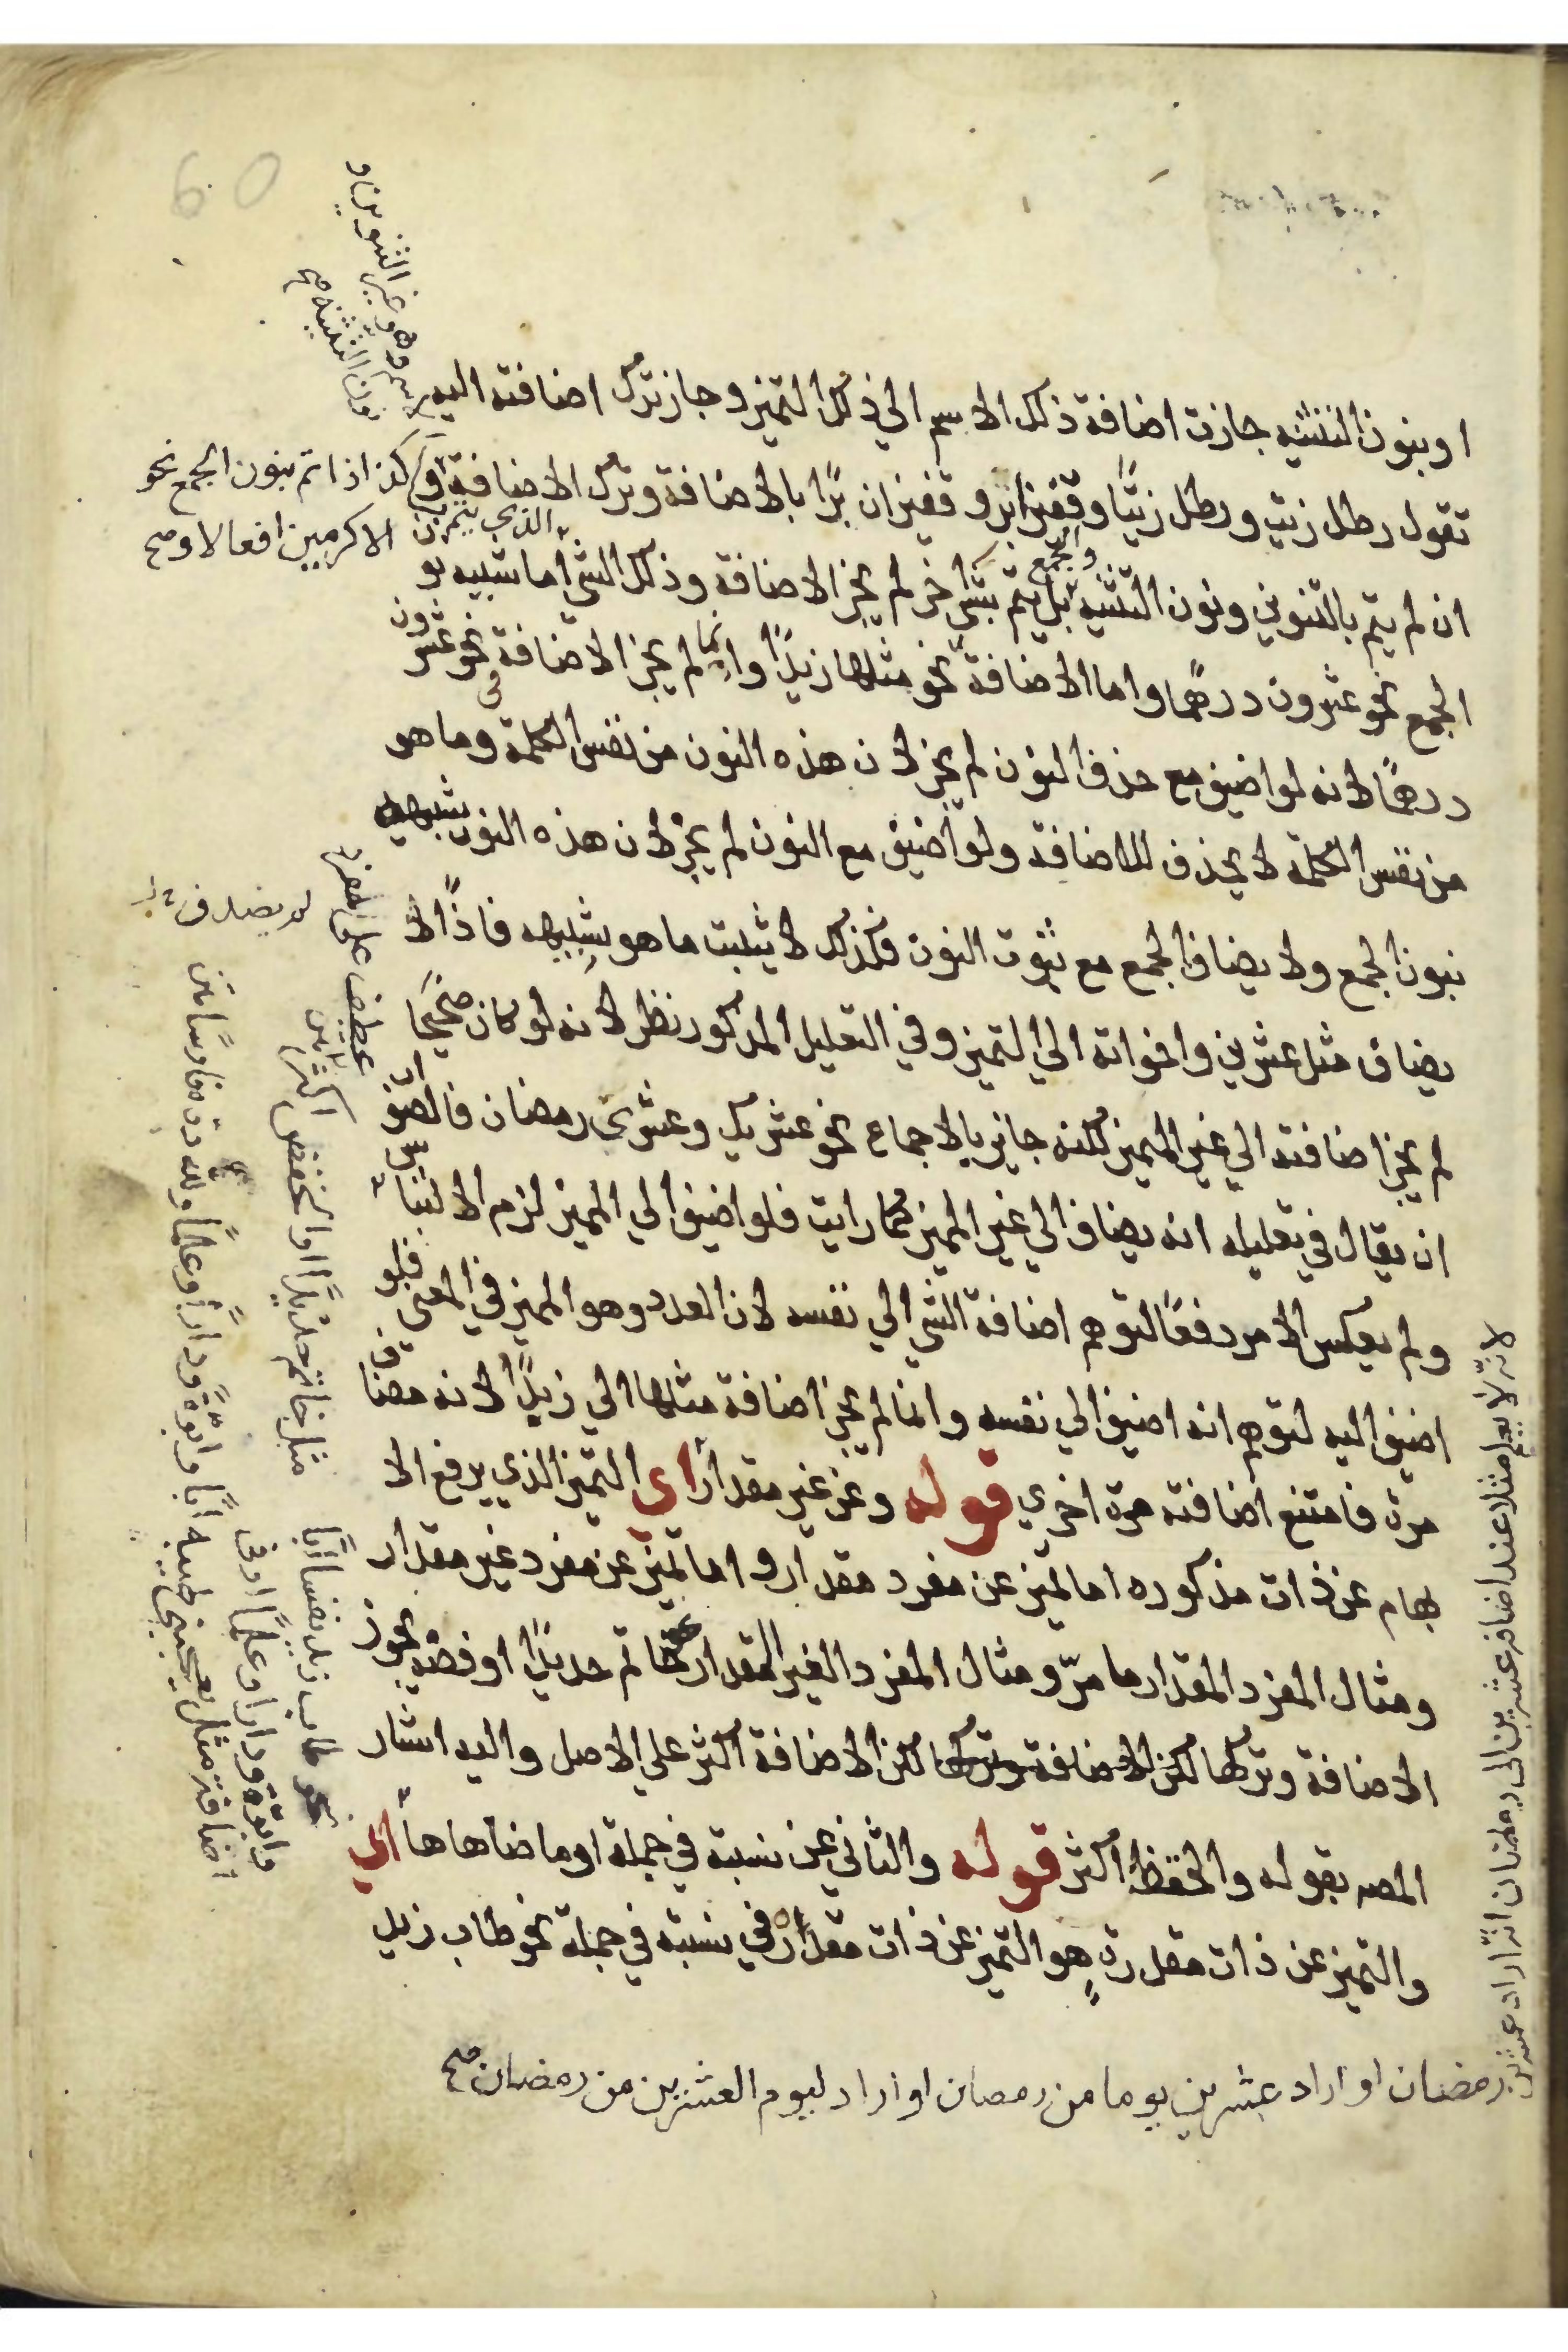 او بنون التثنيه جازت اضافة ذلك الاسم الي ذلك التميز وجاز ترك اضافته اليه
تقول رطل زيت ورطل زيتًا وقفيزا بر وقفيزان برًا بالاضافة وترك الاضافة
وكذا اذا تم بنون الجمع نحو
الاكرمين افعالا وصح
ان لم يتم بالتنوين ونون التثنيه والجمع بل يتم بشي اخر لم يجز الاضافة وذلك الشي اما شبيه بنون
الجمع نحو عشرون درهمًا واما الاضافة نحو مثلها زيدًا وانما لم يجز الاضافة في نحو عشرون
درهمًا لانه لو اضيف مع حذف النون لم يجز لان هذه النون من نفس الكلمة وما هو
من نفس الكلمة لا يحذف للاضافة ولو اضيف مع النون لم يجز لان هذه النون شبيه
بنون الجمع ولا يضاف الجمع مع ثبوت النون فكذلك لا يثبت ما هو شبيهه فاذًا لا
يضاف مثل عشرين واخواته الي التميز وفي التعليل المذكور نظر لانه لو كان صحيحًا
لم يجز اضافته الي غير المميز لكنه جايز بالاجماع نحو عشريك وعشري رمضان فالصواب
ان يقال في تعليله انه يضاف الي غير المميز كما رايت فلو اضيف الي المميز لزم الالتباس
ولم يعكس الامر دفعًا لتوهم اضافة الشي الي نفسه لان العدد وهو المميز في المعني فلو
اضيف اليه لتوهم انه اضيف الي نفسه وانما لم يجز اضافة مثلها الي زيدًا لانه مضاف
مرة فامتنع اضافته مرة اخري قوله وعن غير مقدار أي التميز الذي يرفع الا
بهام عن ذات مذكوره اما تميز عن مفرد مقدار واما تميز عن مفرد غير مقدار
ومثال المفرد المقدار ما مرّ ومثال المفرد الغير المقدار نحو خاتم حديدًا او فضه يجوز
الاضافة وتركها لكن الاضافة وتركها لكن الاضافة اكثر علي الاصل واليه اشار
المصه بقوله والخفض اكثر قوله والثاني عن نسبة في جملة او ما ضاهاها أي
والتميز عن ذات مقدرة هو التميز عن ذات مقدرة في نسبة في جملة نحو طاب زيد
لانه لا يعلم مثلا عند اضافة عشرين الى رمضان انه اراد عشرين
رمضان او اراد عشرين يوما من رمصان او اراد ليوم العشرين من رمضان صح
عطف على مفرد
مثل خاتم حديدًا والخفض اكثر
نحو طاب زيد نفسا ابًا
وابوّة ودارا وعلمًا او في
اضافة مثل يعجبني طيبه ابًا وابوّة ودارًا وعلمًا ولله دره فارسًا